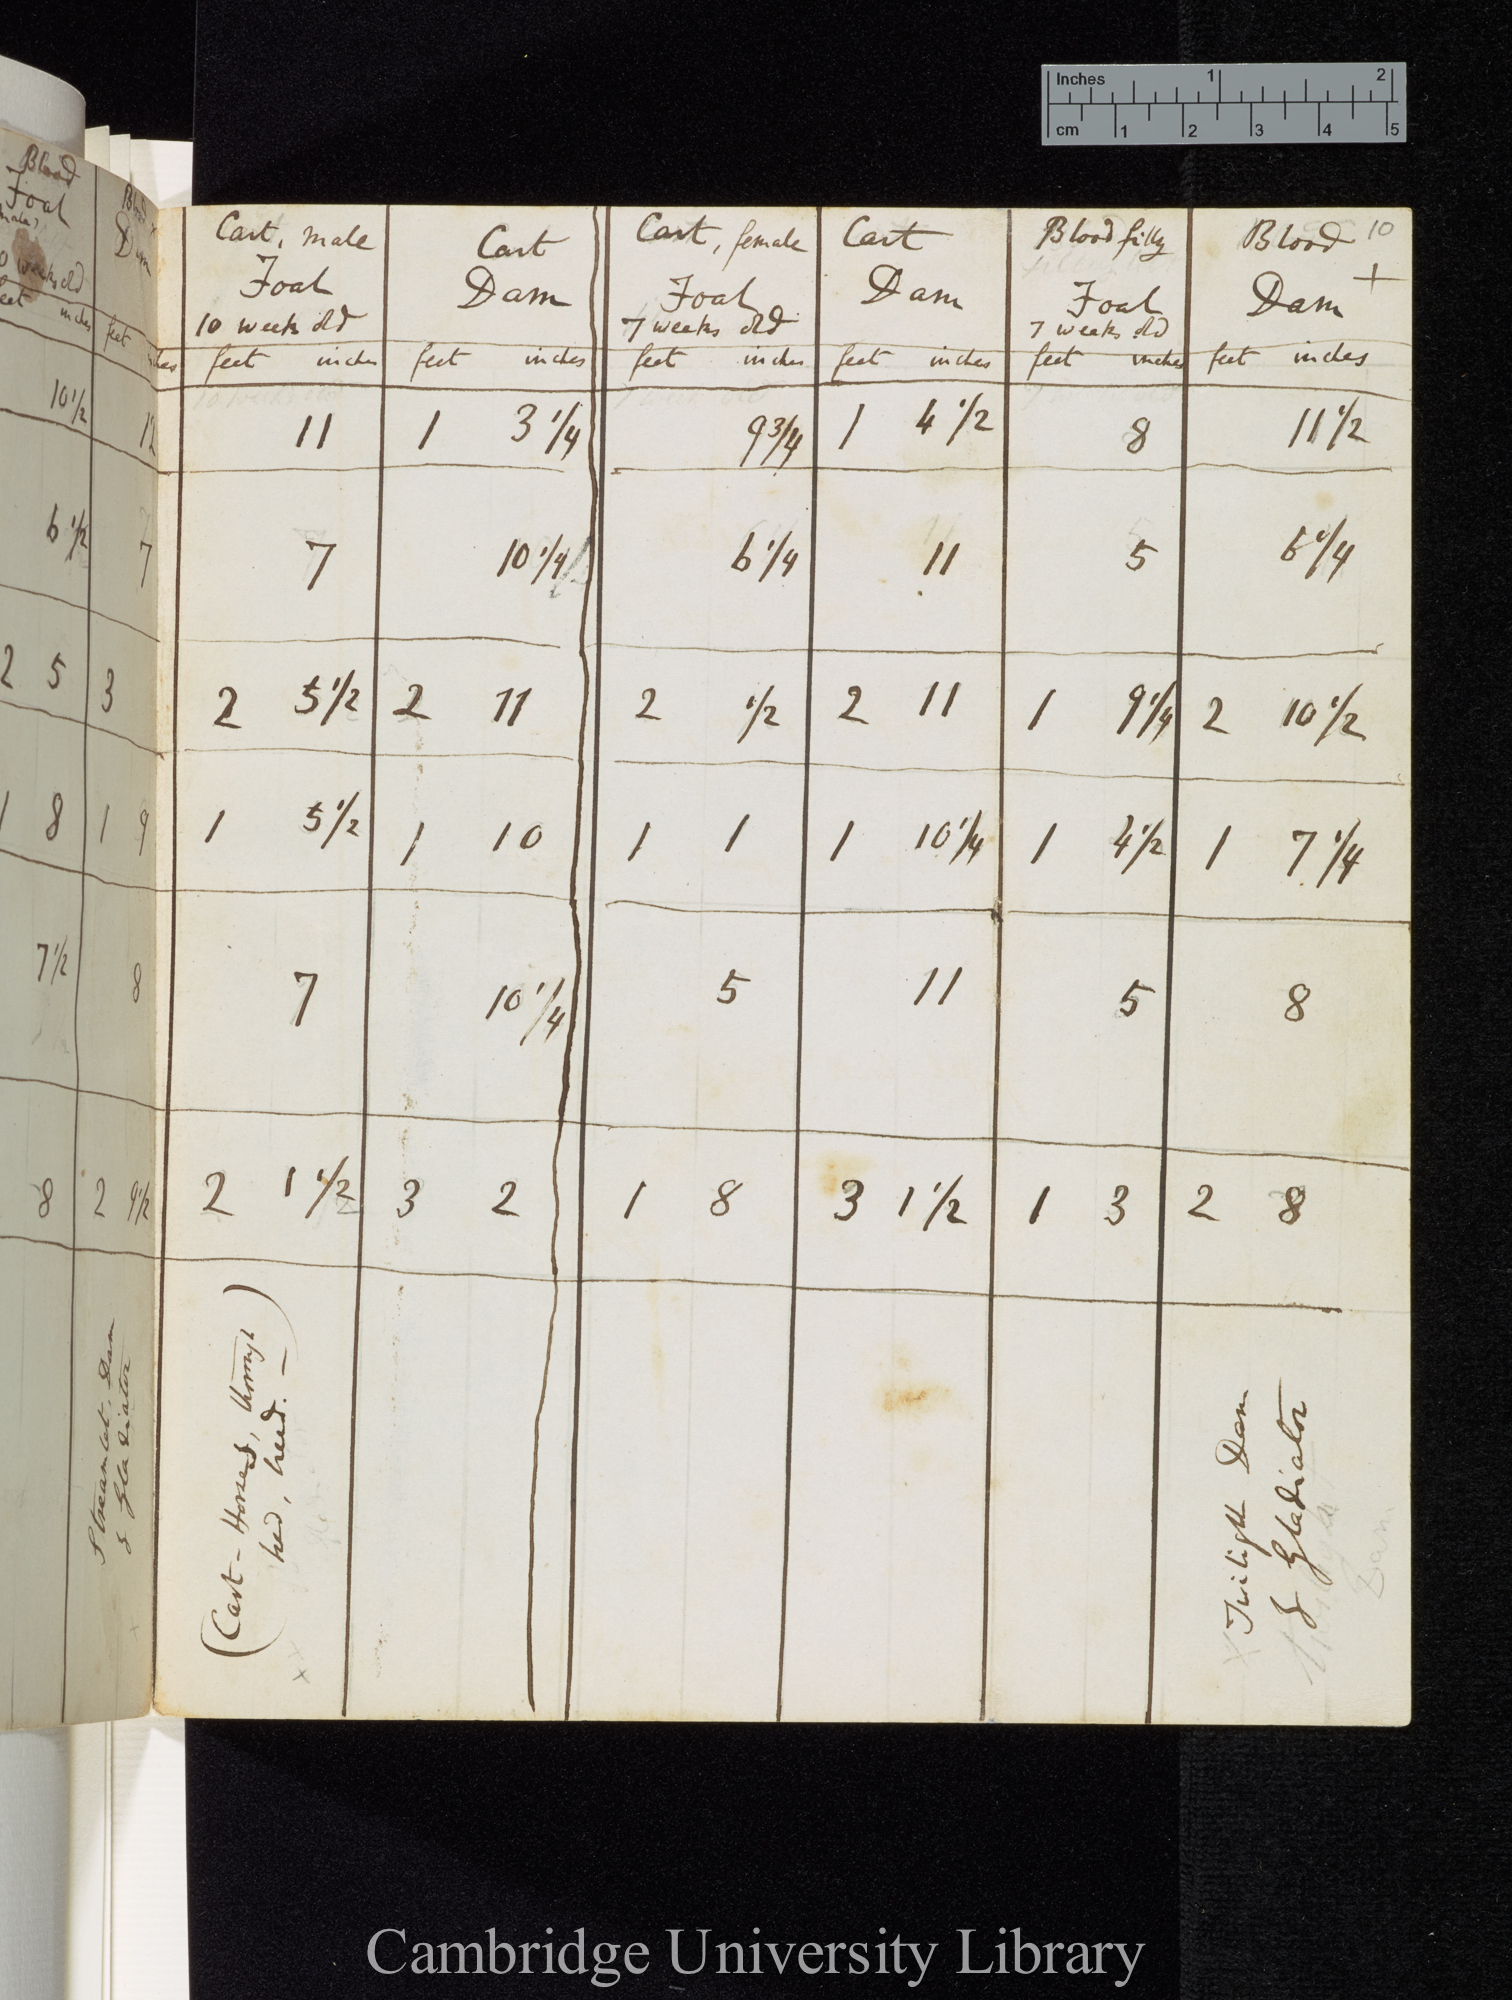 Inches 1 2
cm 1 2 3 4 5
Blood
Foal
male,
weeks old
feet inches
10 1/2
6 1/2
2 5
1 8
7 1/2
8
Blood
Dam
feet inches
12
7
3
1 9
8
2 9 1/2
Streamlet, Dam
of Gladiator
Cart, male Cart Cart, female Cart Blood filly Blood 10
Foal Dam Foal Dam Foal Dam +
10 week old 7 weeks old 7 weeks old
feet inches feet inches feet inches feet inches feet inches feet inches
11 1 3 1/4 9 3/4 1 4 1/2 8 11 1/2
7 10 1/4 6 1/4 11 5 6 1/4
2 5 1/2 2 11 2 1/2 2 11 1 9 1/4 2 10 1/2
1 5 1/2 1 10 1 1 1 10 1/4 1 4 1/2 1 7 1/4
7 10 1/4 5 11 5 8
2 1 1/2 3 2 1 8 3 1 1/2 1 3 2 8
(Cart-Horses, through
bred, breed. —)
Twilight Dam
of Gladiator
Dam
Cambridge University Library